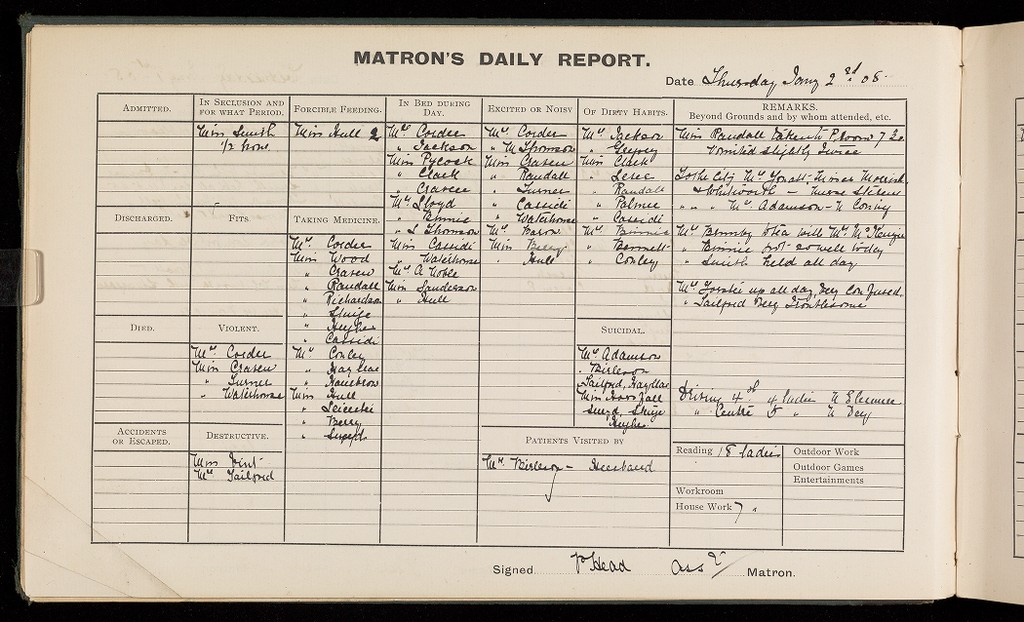 MATRON'S DAILY REPORT.
Date Thursday Jany 2nd 08
ADMITTED.
IN SECLUSION AND FOR WHAT PERIOD.
Miss Smith
1/2 hour.
FORCIBLE FEEDING.
Miss Hull 2
IN BED DURING DAY.
Mrs Corder
" Jackson
Miss Pycock
" Clark
" Craven
Mrs Lloyd
" Binnie
" L Thomson
Miss Cassidi
" Waterhouse
Mrs A Noble
Miss Sanderson
" Hull
EXCITED OR NOISY
Mrs Corder
" M Thomson
Miss Craven
" Randall
" Turner
" Cassidi
" Waterhouse
Mrs Baron
Miss Berry
" Hull
OF DIRTY HABITS.
Mrs Jackson
"
Miss Clark
"
" Randall
" Palmer
" Cassidi
Mrs Binnie
" Bennett
" Conley
REMARKS.
Beyond Grounds and by whom attended, etc.
Miss Randall taken to P. room 7.30
Vomited slightly twice
To the City Mrs
& Whitworth – Nurse
" " " Mrs Adamson – N Conley
Mrs to tea with Mrs
" Binnie not so well today
" Smith held all day
Mrs up all day, Very Confused.
" Tailford Very Troublesome
Driving 4 of 4 ladies N Eleanor
" Centre " N Dey
DISCHARGED.
FITS.
TAKING MEDICINE.
Mrs Corder
Miss Wood
" Craven
" Randall
" Richardson
"
" Hughes
" Cassidi
Mrs Conley
" Hayllar
"
Miss Hull
" Leicester
" Berry
"
DIED.
VIOLENT.
Mrs Corder
Miss Craven
" Turner
" Waterhouse
SUICIDAL.
Mrs Adamson
" Birleson
Tailford, Hayllar
Miss Horsfall
Hughes
ACCIDENTS OR ESCAPED.
DESTRUCTIVE.
Miss
Mrs Tailford
PATIENTS VISITED BY
Mrs Birleson – Husband
Reading 18 ladies
Outdoor Work
Outdoor Games
Entertainments
Workroom
House Work 7 "
Signed Head Asst Matron.